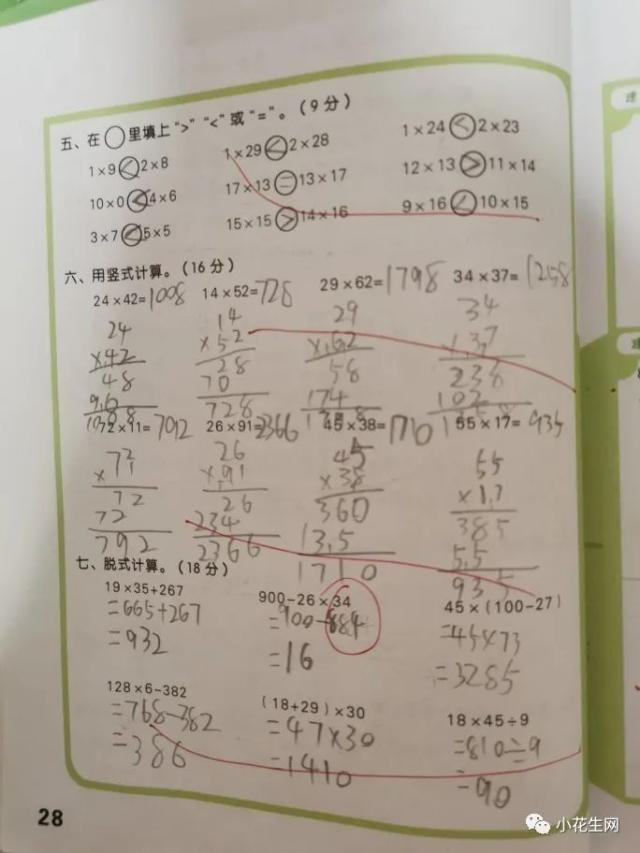 五、在○里填上“>”“<”或“=”。(9分)
1×9<2×8 1×29<2×28 1×24<2×23
10×0<4×6 17×13=13×17 12×13>11×14
3×7<5×5 15×15>14×16 9×16<10×15
六、用竖式计算。(16分)
24×42=1008 14×52=728 29×62=1798 34×37=1258
24 14 29 34
×42 ×52 ×62 ×37
48 28 58 238
96 70 174 102
1008 728
72×11=7092 26×91=2366 45×38=1710 55×17=935
72 26 45 55
×11 ×91 ×38 ×17
72 26 360 385
72 234 135 55
792 2366 1710 935
七、脱式计算。(18分)
19×35+267 900-26×34 45×(100-27)
=665+267 =900-884 =45×73
=932 =16 =3285
128×6-382 (18+29)×30 18×45÷9
=768-382 =47×30 =810÷9
=386 =1410 =90
28
小花生网